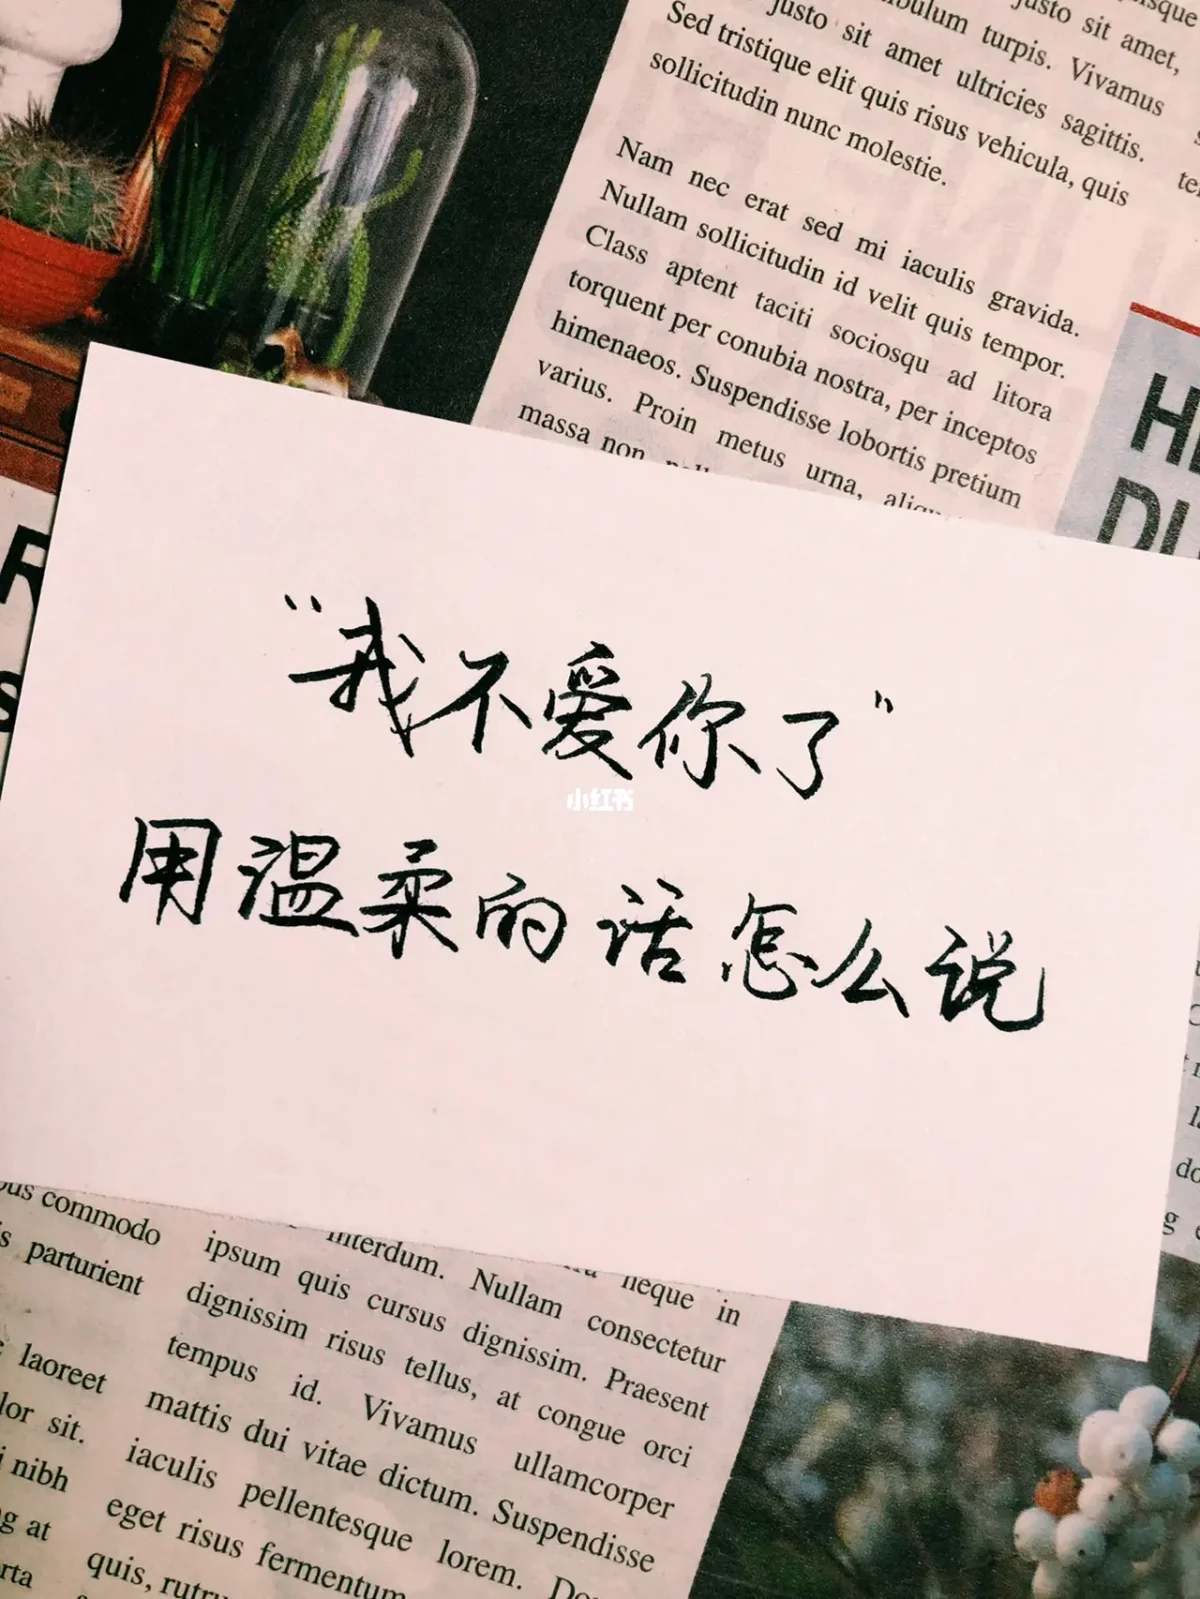 usque
justo sit amet,
bulum turpis. Vivamus
justo sit amet ultricies sagittis.
Sed tristique elit quis risus vehicula, quis
sollicitudin nunc molestie.
Nam nec erat sed mi iaculis gravida.
Nullam sollicitudin id velit quis tempor.
Class aptent taciti sociosqu ad litora
torquent per conubia nostra, per inceptos
himenaeos. Suspendisse lobortis pretium
varius. Proin metus urna,
massa non
DU
“我不爱你了”
小红书
用温柔的话怎么说
commodo
parturient
laoreet
sit.
nibh
at
interdum.
neque in
ipsum quis cursus dignissim. Nullam consectetur
dignissim risus tellus, at congue Praesent
tempus id. Vivamus orci
mattis dui vitae dictum. ullamcorper
iaculis pellentesque lorem. Suspendisse
eget risus fermentum
quis,